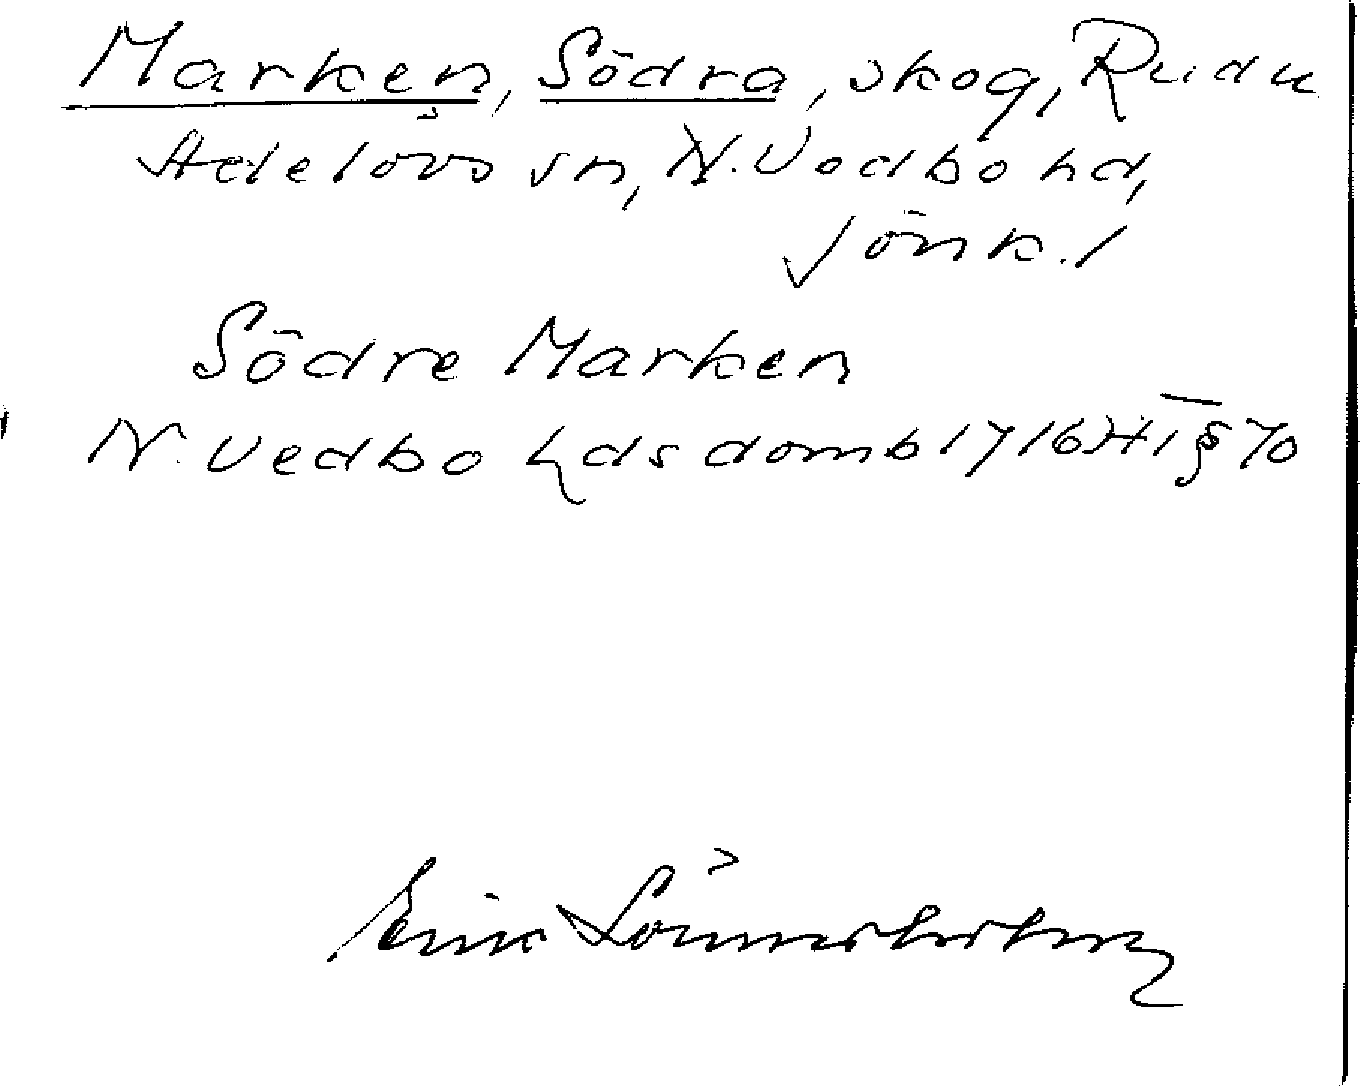 Marken, Södra, skog, Rudu
Adelövs sn, N. Vedbo hd,
Jönk. l
Södre Marken
N. Vedbo hds domb 1716 Ht § 70
Erik